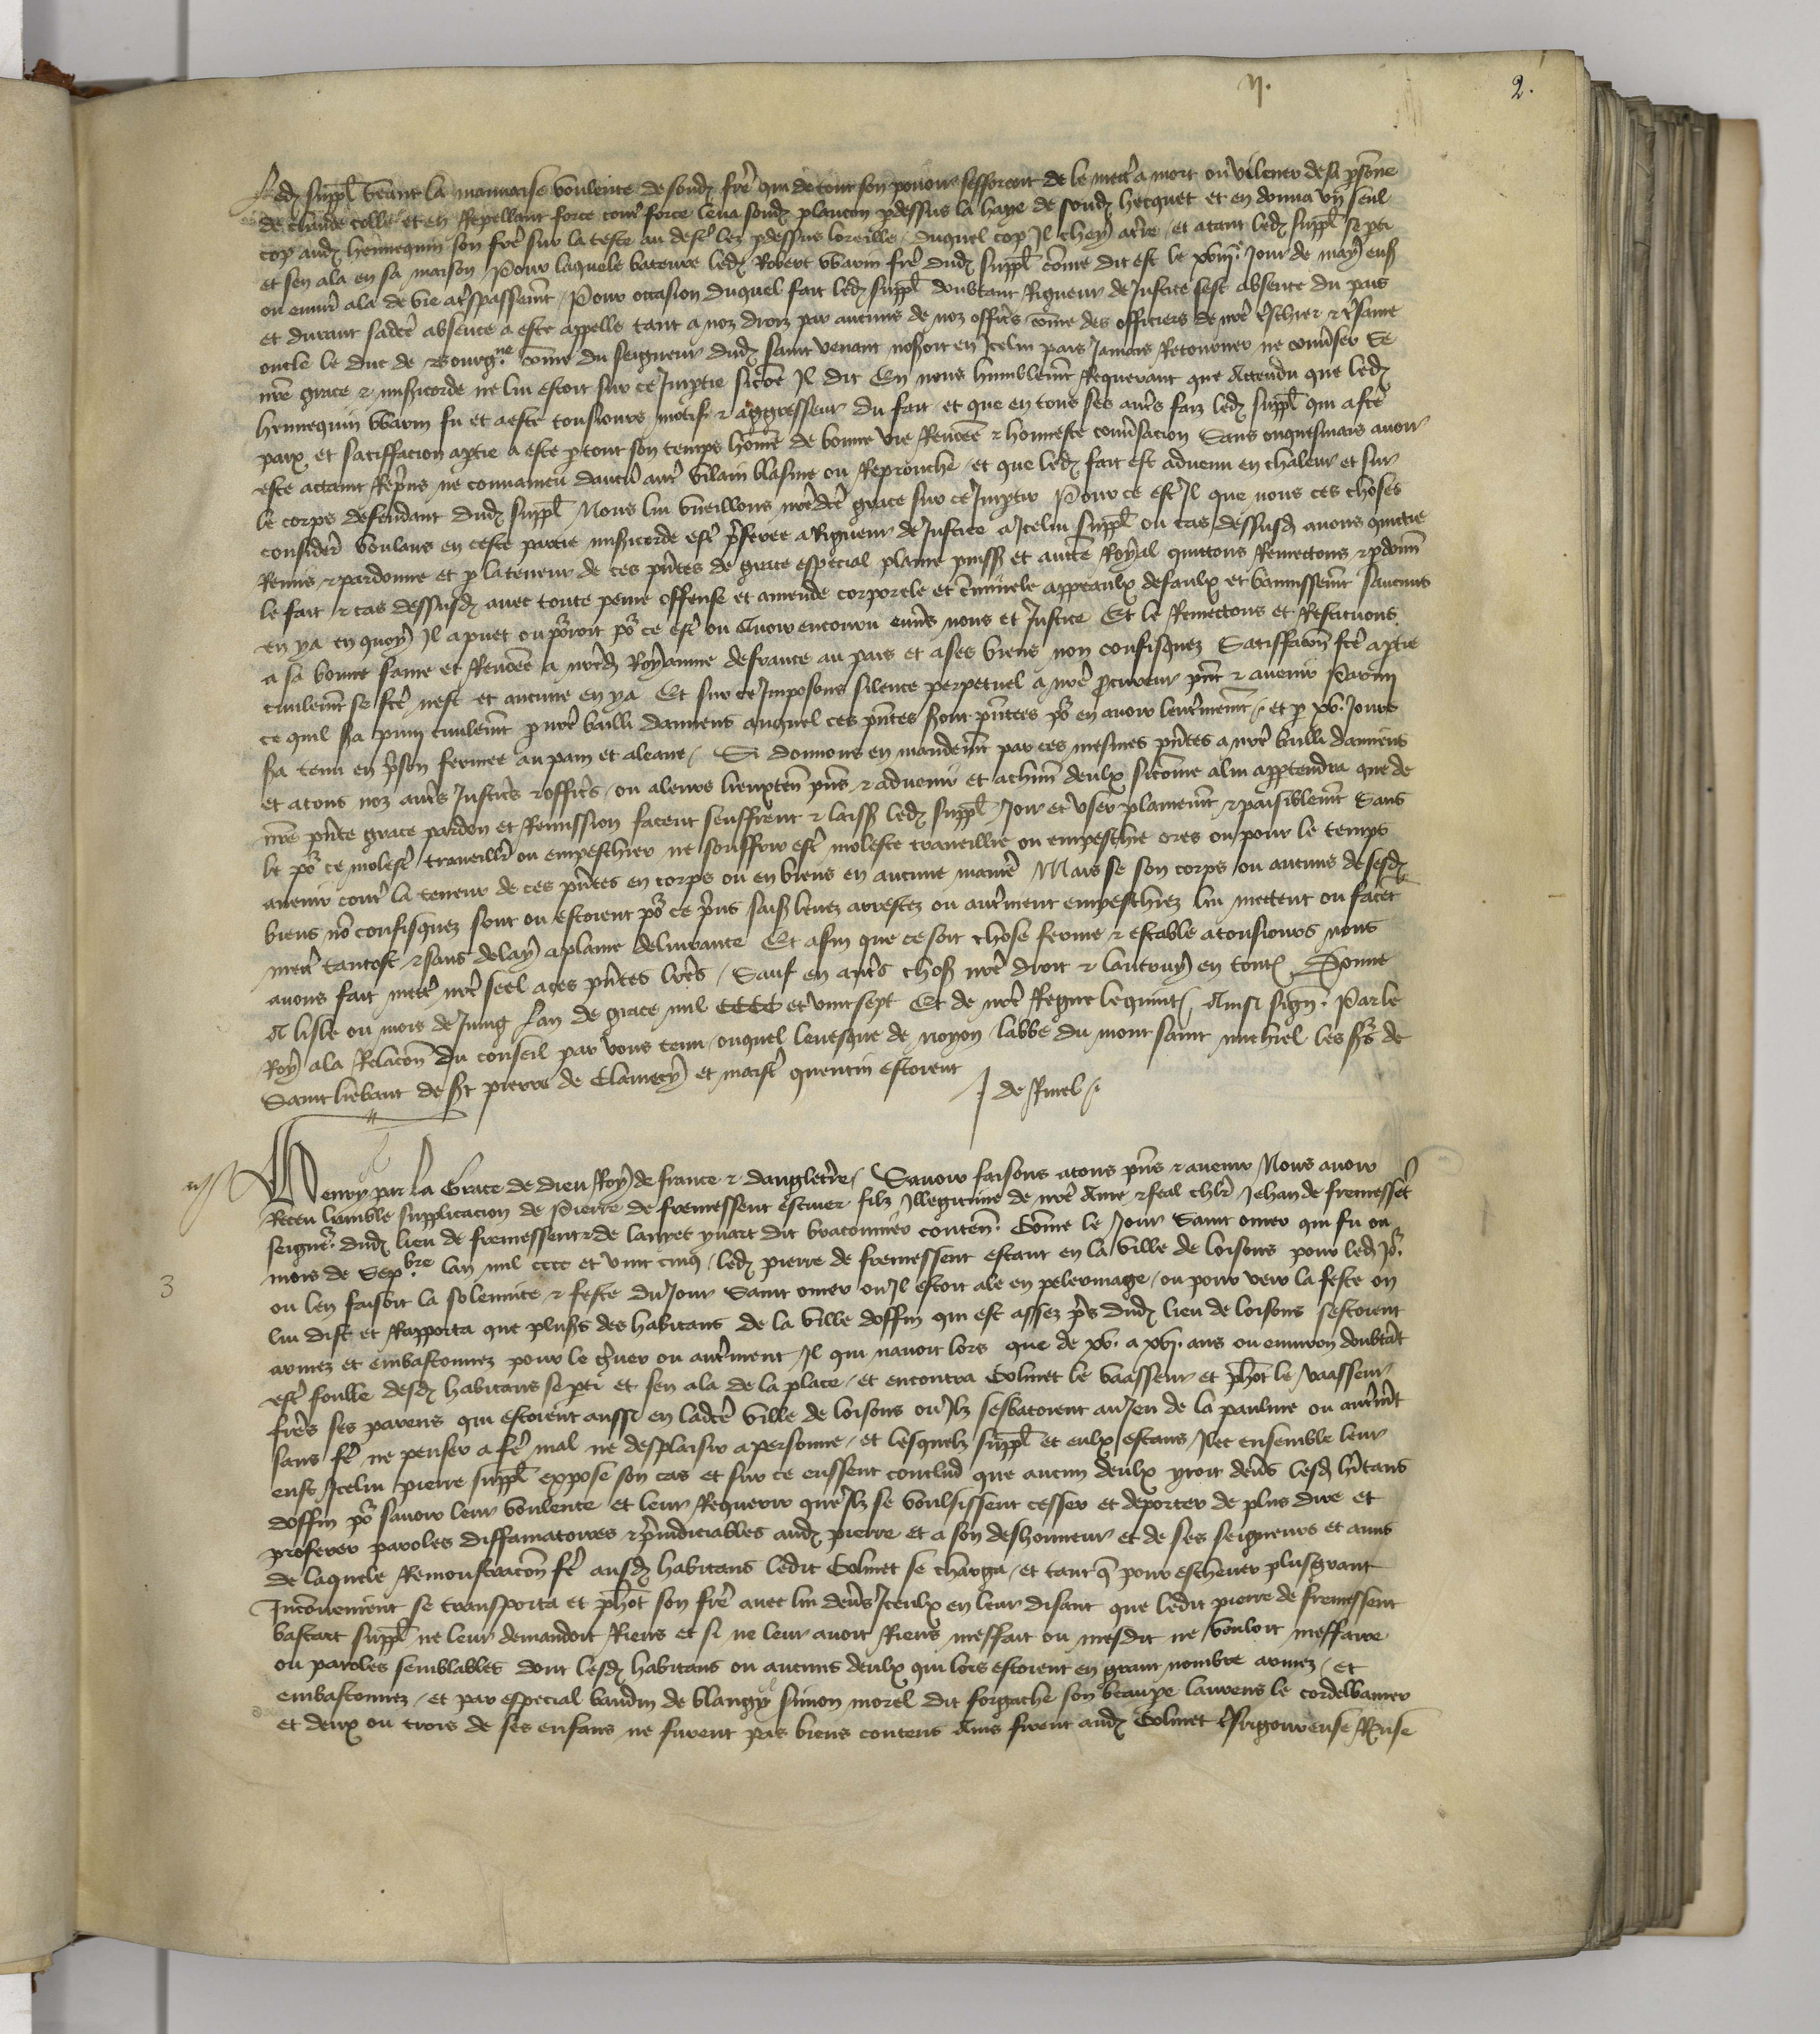 n.
2.
Led suppl veant la mauvaise voulente de sond frere qui de tout son povoir sefforcoit de le mettre a mort ou vilener de sa psonne
de chaude colle et en Repellant force contre force leva sond plancon pdessus la haye de sond hecquet et en donna un seul
cop aud hennequin son frere sur la teste au dess lez pdessus loreille duquel cop Il chey a tre et atant led suppl se pti
et sen ala en sa maison Pour laquele bateure led Robert Warin frere dud suppl come dit est le xviije Jour de may ens
ou environ ala de vie a trespassemt Pour occasion duquel fait led suppl doubtant Rigueur de Justice sest absente du pais
et durant sadte absence a este appelle tant a noz droiz par aucuns de noz officrs come des officiers de nre tschier & tsame
oncle le duc de Bourgne come du seigneur dud saint venant nosoit en Icelui pais Jamais Retourner ne convser Se
nre grace & misicorde ne lui estoit sur ce Imptie sicome Il dit En nous humblemt Requerant que Attendu que led
hennequin Warin fu et a este tousiours motif & aggresseur du fait et que en tous ses autrs faiz led suppl qui a fte
paix et satiffacion a ptie a este p tout son temps home de bonne vie Renomee & honneste convsacion Sans onquesmais avoir
este attaint Repris ne convaincu daucun autre vilain blasme ou Reprouche et que led fait est advenu en chaleur et sur
le corps defendant dud suppl Nous lui vueillons nredte grace sur ce Imptir Pour ce est Il que nous ces choses
considere voulans en ceste partie misicorde estre prferee a Rigueur de Justice a Icelui suppl ou cas dessusd avons quittie
Remis & pardonne et p la teneur de ces pntes de grace especial plaine puiss et aucte Royal quittons Remettons & pdonn
le fait & cas dessusd avec toute peine offense et amende corporele et criminele appeaulx defaulx et bannissemt saucuns
en ya en quoy Il a puet ou porroit po ce estre ou Avoir encouru envs nous et Justice Et le Remettons et Restituons
a sa bonne fame et Renomee a nred Royaume de france au pais et a ses biens non confisquez Satiffacion fte a ptie
civilemt se fte nest et aucune en ya Et sur ce Imposons silence perpetuel a nre procureur pnt & avenir Parmi
ce quil sa puny civilemt p nre bailli damiens auquel ces pntes sont pntees po en avoir lentmemt et p xv. Jours
sa tenu en prison fermee au pain et a leaue Si donnons en mandemt par ces mesmes pntes a nre bailli damiens
et a tous noz autrs Justicrs & officrs ou a leurs lieuxten pns & advenir et a chun deulx sicome a lui apptendra que de
nre pnte grace pardon et Remission facent seuffrent & laiss led suppl Joir et User plainemt & paisiblemt Sans
le po ce molest traveillr ou empeschier ne souffrir estre moleste traveillie ou empeschie ores ou pour le temps
avenir contre la teneur de ces pntes en corps ou en biens en aucune maniere Mais se son corps ou aucuns de sesd
biens no confisquez sont ou estoient po ce prins saisi levez arrestez ou autrement empeschiez lui mettent ou facet
mettre tantost & sans delay a plaine delivrance Et afin que ce soit chose ferme & estable a tousiours nous
avons fait mettre nre seel a ces pntes lres Sauf en autrs chos nre droit & lautruy en toutes Donne
A lisle ou mois de Juing Lan de grace mil CCCC et vint sept Et de nre Regne le quint Ainsi sign Par le
Roy a la Relacion du conseil par vous tenu ouquel levesque de noyon labbe du mont saint michiel les srs de
Saint liebaut de st pierre de Clamecy et maistre quentin estoient
J de Rivel
Henry par la Grace de dieu Roy de france & dangletre Savoir faisons a tous pns & avenir Nous avoir
Receu lumble supplicacion de Pierre de fremessent escuier filz Illegitime de nre Ame & feal chlr Jehan de fremesset
seigneur dud lieu de fremessent & de lauret yvart dit bratonnier conten. Come le Jour Saint omer qui fu ou
mois de Sepbre lan mil cccc et vint cinq led pierre de fremessent estant en la ville de loisons pour led Jo
3
ou len faisoit la solennite & feste du Jour Saint omer ou Il estoit ale en pelerinage ou pour veir la feste on
lui dist et Rapporta que plusrs des habitans de la ville doffin qui est assez prs dud lieu de loisons sestoient
armez et embastonnez pour le grever ou autrement Il qui navoit lors que de xv. a xvj. ans ou environ doubtat
estre foulle desd habitans se pti et sen ala de la place et encontra Colinet le vaasseur et phot le vaasseur
freres ses parens qui estoient aussi en ladte ville de loisons ou Ilz sesbatoient au Jeu de la paulme ou autremt
sans fe ne penser a fe mal ne desplaisir a personne et lesquelz suppl et eulx estans Ilec ensemble leur
eust Icelui pierre suppl expose son cas et sur ce eussent conclud que aucun deulx yroit devs lesd hitans
doffin po savoir leur voulente et leur Requerir que Ilz se voulsissent cesser et deporter de plus dire et
proferer paroles diffamatoires & preiudiciables aud pierre et a son deshonneur et de ses seigneurs et amis
de laquele Remonstracion fe ausd habitans ledit Colinet se charga et tant q pour eschever plus grant
Inconvenient se transporta et phot son frere avec lui devs Iceulx en leur disant que ledit pierre de fremessent
bastart suppl ne leur demandoit Riens et si ne leur avoit Riens meffait ou mesdit ne vouloit meffaire
ou paroles semblables dont lesd habitans ou aucuns deulx qui lors estoient en grant nombre armez et
embastonnez et par especial baudin de blangy simon morel dit forgache son beaupe laurens le cordewanier
et deux ou trois de ses enfans ne furent pas biens contens Ains firent aud Colinet tsrigoureuse Ruse